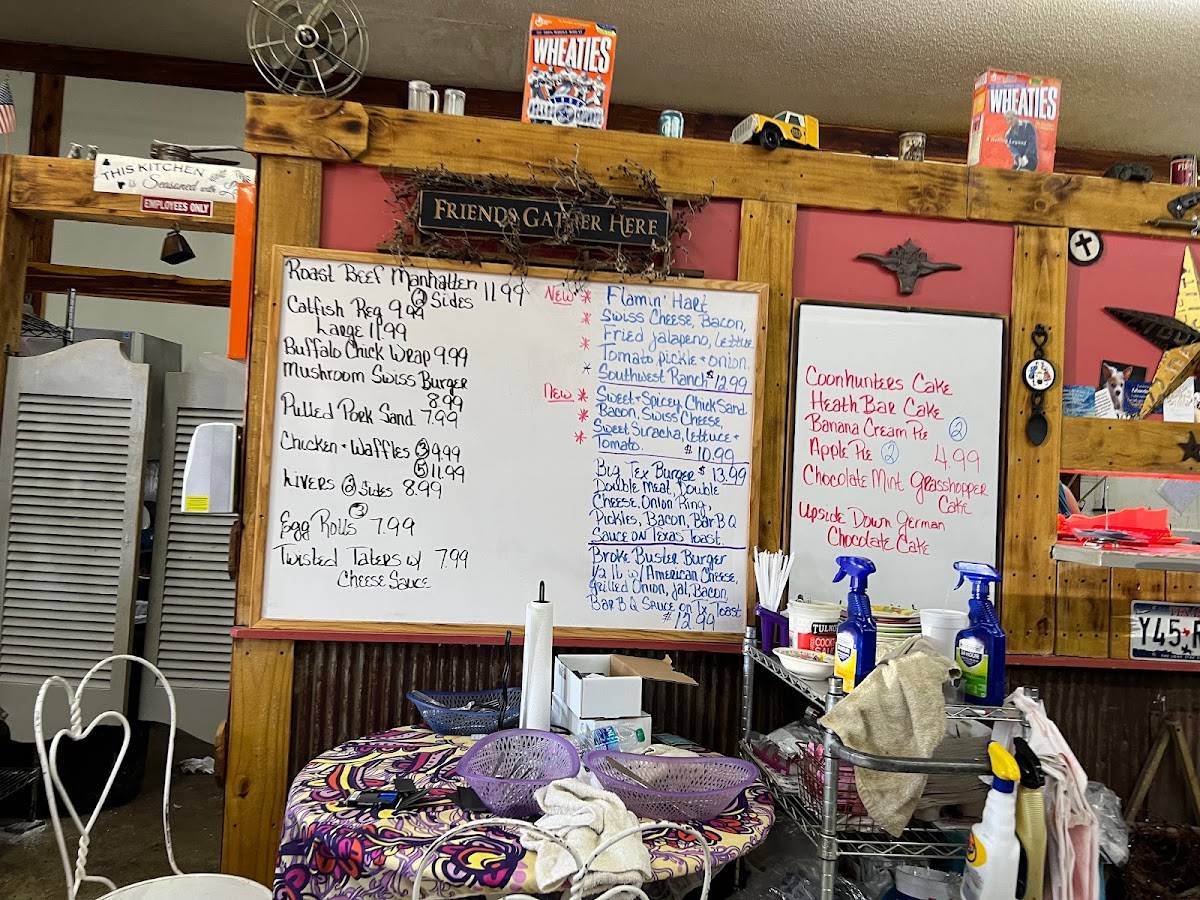 WHEATIES
WHEATIES
THIS KITCHEN
is Seasoned with
EMPLOYEES ONLY
FRIENDS GATHER HERE
Roast Beef Manhatten 11.99
2 Sides
Catfish Reg 9.99
Large 11.99
Buffalo Chick Wrap 9.99
Mushroom Swiss Burger
8.99
Pulled Pork Sand 7.99
Chicken + Waffles 3 9.99
5 11.99
Livers 2 Sides 8.99
3
Egg Rolls 7.99
Twisted Taters w/ 7.99
Cheese Sauce
New * Flamin' Hart
* Swiss Cheese, Bacon,
* Fried Jalapeno, lettuce
* Tomato, pickle + onion.
* Southwest Ranch $12.99
New * Sweet + Spicey Chick Sand
* Bacon, Swiss Cheese,
* Sweet Siracha, Lettuce +
* Tomato. $10.99
Big Tex Burger $13.99
Double Meat, Double
Cheese, Onion Ring,
Pickles, Bacon, Bar B Q
Sauce on Texas Toast.
Broke Buster Burger
1/2 lb w/ American Cheese,
grilled Onion, Jal, Bacon,
Bar B Q Sauce on Tx Toast
$12.99
Coonhunters Cake
Heath Bar Cake
Banana Cream Pie 2
Apple Pie 2 4.99
Chocolate Mint Grasshopper
Cake
Upside Down German
Chocolate Cake
Y45